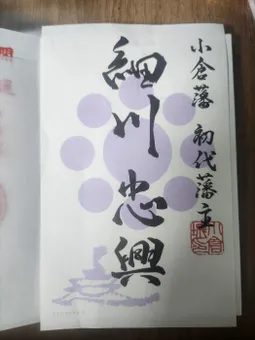 小倉藩 初代藩主
細川忠興